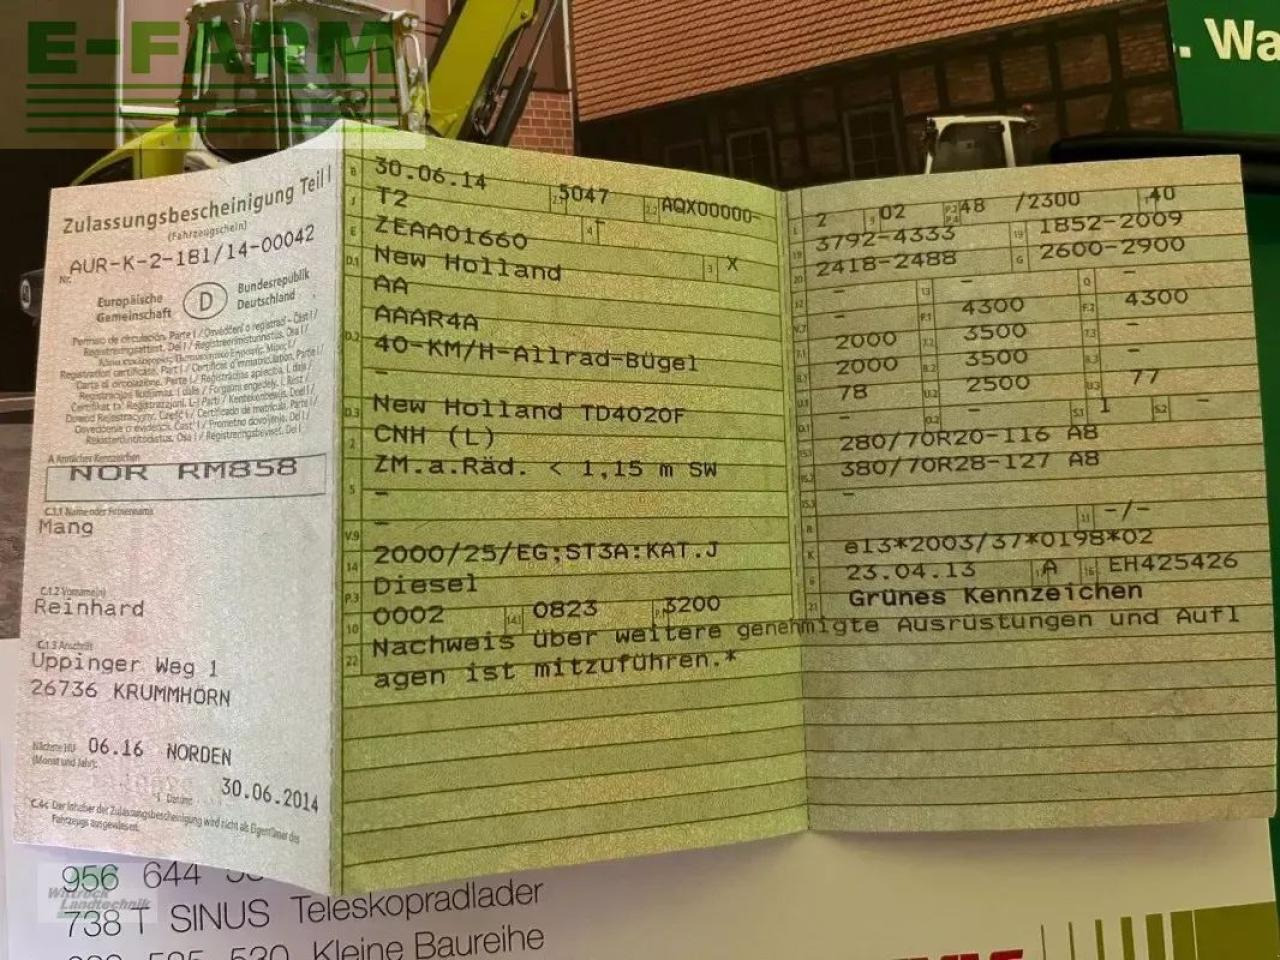 E-FARM
. Wa
Zulassungsbescheinigung Teil I
(Fahrzeugschein)
Nr. AUR-K-2-181/14-00042
Europäische Gemeinschaft
D
Bundesrepublik Deutschland
Permiso de circulación. Parte I / Osvědčení o registraci - Část I /
Registreringsattest. Del I / Registreerimistunnistus. Osa I /
Registration certificate. Part I / Certificat d'immatriculation. Partie I /
Carta di circolazione. Parte I / Reģistrācijas apliecība. I. daļa /
A Amtliches Kennzeichen
NOR RM858
C.1.1 Name oder Firmenname
Mang
C.1.2 Vorname(n)
Reinhard
C.1.3 Anschrift
Uppinger Weg 1
26736 KRUMMHÖRN
Nächste HU (Monat und Jahr): 06.16 NORDEN
Datum: 30.06.2014
C.4c Der Inhaber der Zulassungsbescheinigung wird nicht als Eigentümer des
Fahrzeugs ausgewiesen.
B 30.06.14 2.1 5047 2.2 AQX00000-
J T2 4 -
E ZEAA01660 3 X
D.1 New Holland
AA
D.2 AAAR4A
40-KM/H-Allrad-Bügel
-
D.3 New Holland TD4020F
2 CNH (L)
5 ZM.a.Räd. < 1,15 m SW
-
V.9 -
14 2000/25/EG;ST3A:KAT.J
P.3 Diesel
10 0002 14.1 0823 P.1 3200
22 Nachweis über weitere genehmigte Ausrüstungen und Aufl
agen ist mitzuführen.*
L 2 9 02 P.2 P.4 48 /2300 T 40
18 3792-4333 19 1852-2009
20 2418-2488 G 2600-2900
12 - 13 - Q -
V.7 - F.1 4300 F.2 4300
7.1 2000 7.2 3500 7.3 -
8.1 2000 8.2 3500 8.3 -
U.1 78 U.2 2500 U.3 77
O.1 - O.2 - S.1 1 S.2 -
15.1 280/70R20-116 A8
15.2 380/70R28-127 A8
15.3 -
R 11 -/-
K e13*2003/37*0198*02
6 23.04.13 17 A 16 EH425426
21 Grünes Kennzeichen
956 644
738 T SINUS Teleskopradlader
530 Kleine Baureihe
Wittrock
Landtechnik